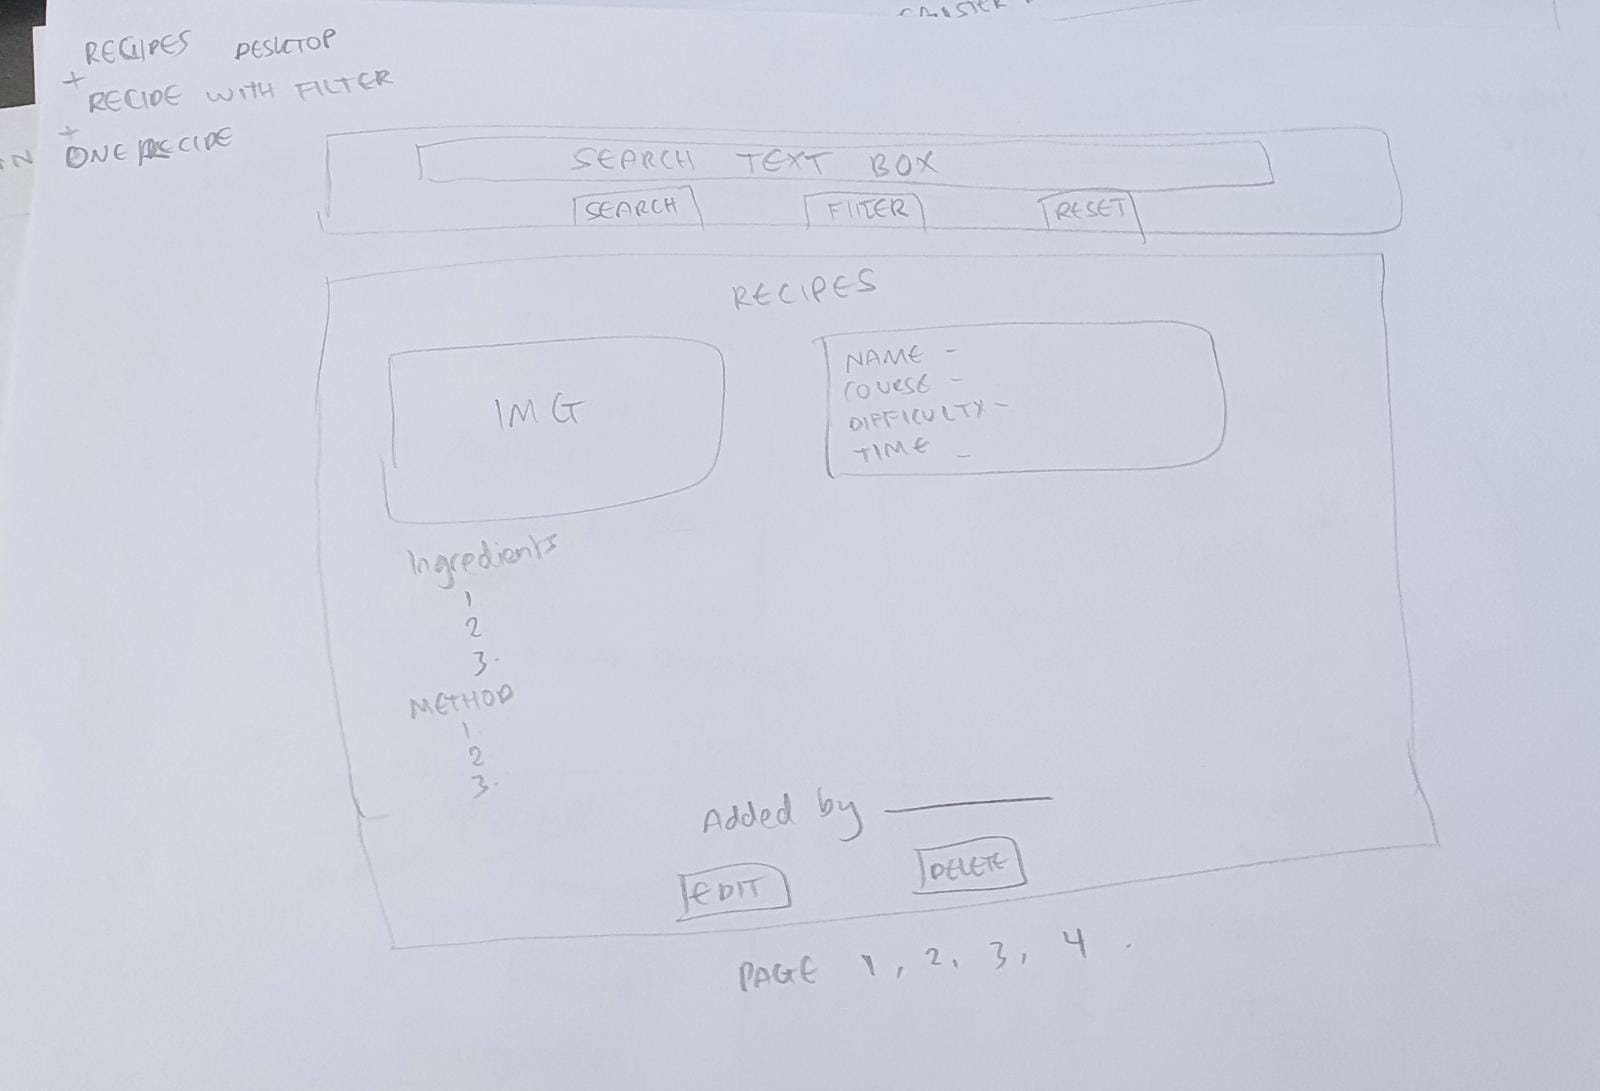 RECIPES DESKTOP
+
RECIPE WITH FILTER
+
ONE RECIPE
SEARCH TEXT BOX
SEARCH FILTER RESET
RECIPES
IMG
NAME -
COURSE -
DIFFICULTY -
TIME -
Ingredients
1
2
3.
METHOD
1.
2
3.
Added by
EDIT DELETE
PAGE 1, 2, 3, 4.